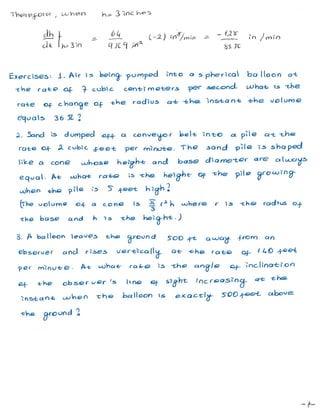 Therefore, when h= 3 inches
dh/dt | h=3in = 64/9π·9 in² (-2) in³/min = -128/81π in /min
Exercises: 1. Air is being pumped into a spherical balloon at
the rate of 7 cubic centimeters per second. What is the
rate of change of the radius at the instant the volume
equals 36 π ?
2. Sand is dumped off a conveyor belt into a pile at the
rate of 2 cubic feet per minute. The sand pile is shaped
like a cone whose height and base diameter are always
equal. At what rate is the height of the pile growing
when the pile is 5 feet high?
(The volume of a cone is π/3 r²h where r is the radius of
the base and h is the height.)
3. A balloon leaves the ground 500 ft away from an
observer and rises vertically at the rate of 140 feet
per minute. At what rate is the angle of inclination
of the observer's line of sight increasing at the
instant when the balloon is exactly 500 feet above
the ground ?